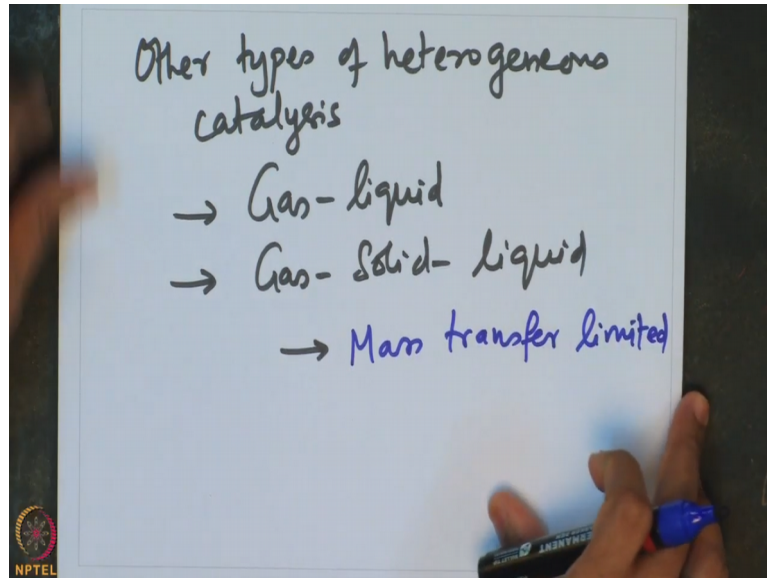 Other types of heterogeneous
catalysis
→ Gas-liquid
→ Gas-Solid-liquid
→ Mass transfer limited
PERMANENT
NPTEL